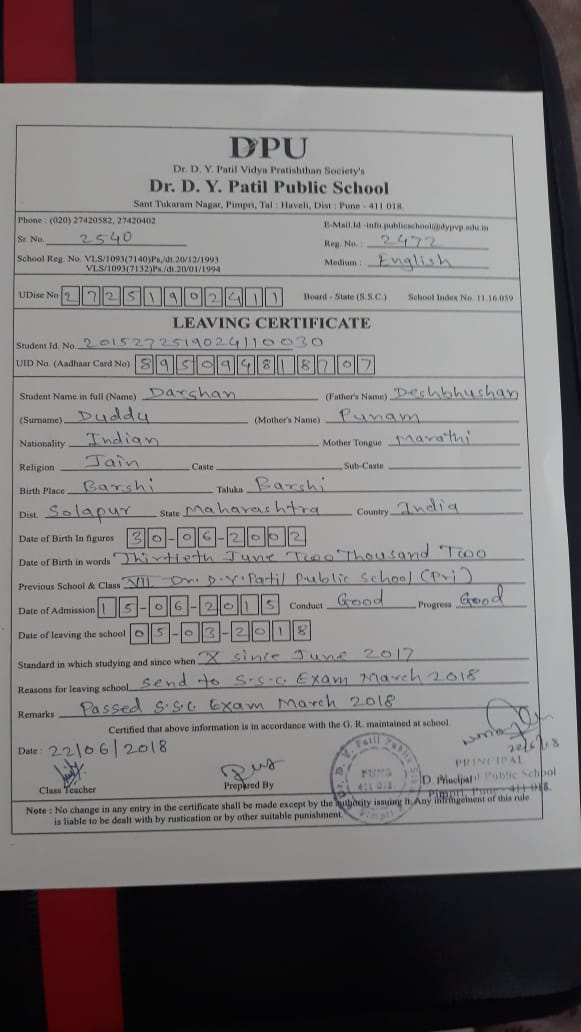 DPU
Dr. D. Y. Patil Vidya Pratishthan Society's
Dr. D. Y. Patil Public School
Sant Tukaram Nagar, Pimpri, Tal : Haveli, Dist : Pune - 411 018.
Phone : (020) 27420582, 27420402 E-Mail.Id -info.publicschool@dypvp.edu.in
Sr. No. 2540 Reg. No. : 2472
School Reg. No. VLS/1093(7140)Ps,/dt.20/12/1993 Medium : English
VLS/1093(7132)Ps./dt.20/01/1994
UDise No 27251902411 Board - State (S.S.C.) School Index No. 11.16.059
LEAVING CERTIFICATE
Student Id. No. 2015272519024110030
UID No. (Aadhaar Card No) 895094818707
Student Name in full (Name) Darshan (Father's Name) Deshbhushan
(Surname) Duddu (Mother's Name) Punam
Nationality Indian Mother Tongue marathi
Religion Jain Caste Sub-Caste
Birth Place Barshi Taluka Barshi
Dist. Solapur State Maharashtra Country India
Date of Birth In figures 30-06-2002
Date of Birth in words Thirtieth June Two Thousand Two
Previous School & Class VII Dr. D.Y. Patil Public School (Pri)
Date of Admission 15-06-2015 Conduct Good Progress Good
Date of leaving the school 05-03-2018
Standard in which studying and since when X since June 2017
Reasons for leaving school send to S.S.C. Exam March 2018
Remarks Passed S.S.C Exam March 2018
Certified that above information is in accordance with the G. R. maintained at school.
Date : 22/06/2018 22/6/18
PRINCIPAL
Class Teacher Prepared By Principal
Public School
Pimpri, Pune - 411 018.
Note : No change in any entry in the certificate shall be made except by the authority issuing it. Any infringement of this rule
is liable to be dealt with by rustication or by other suitable punishment.